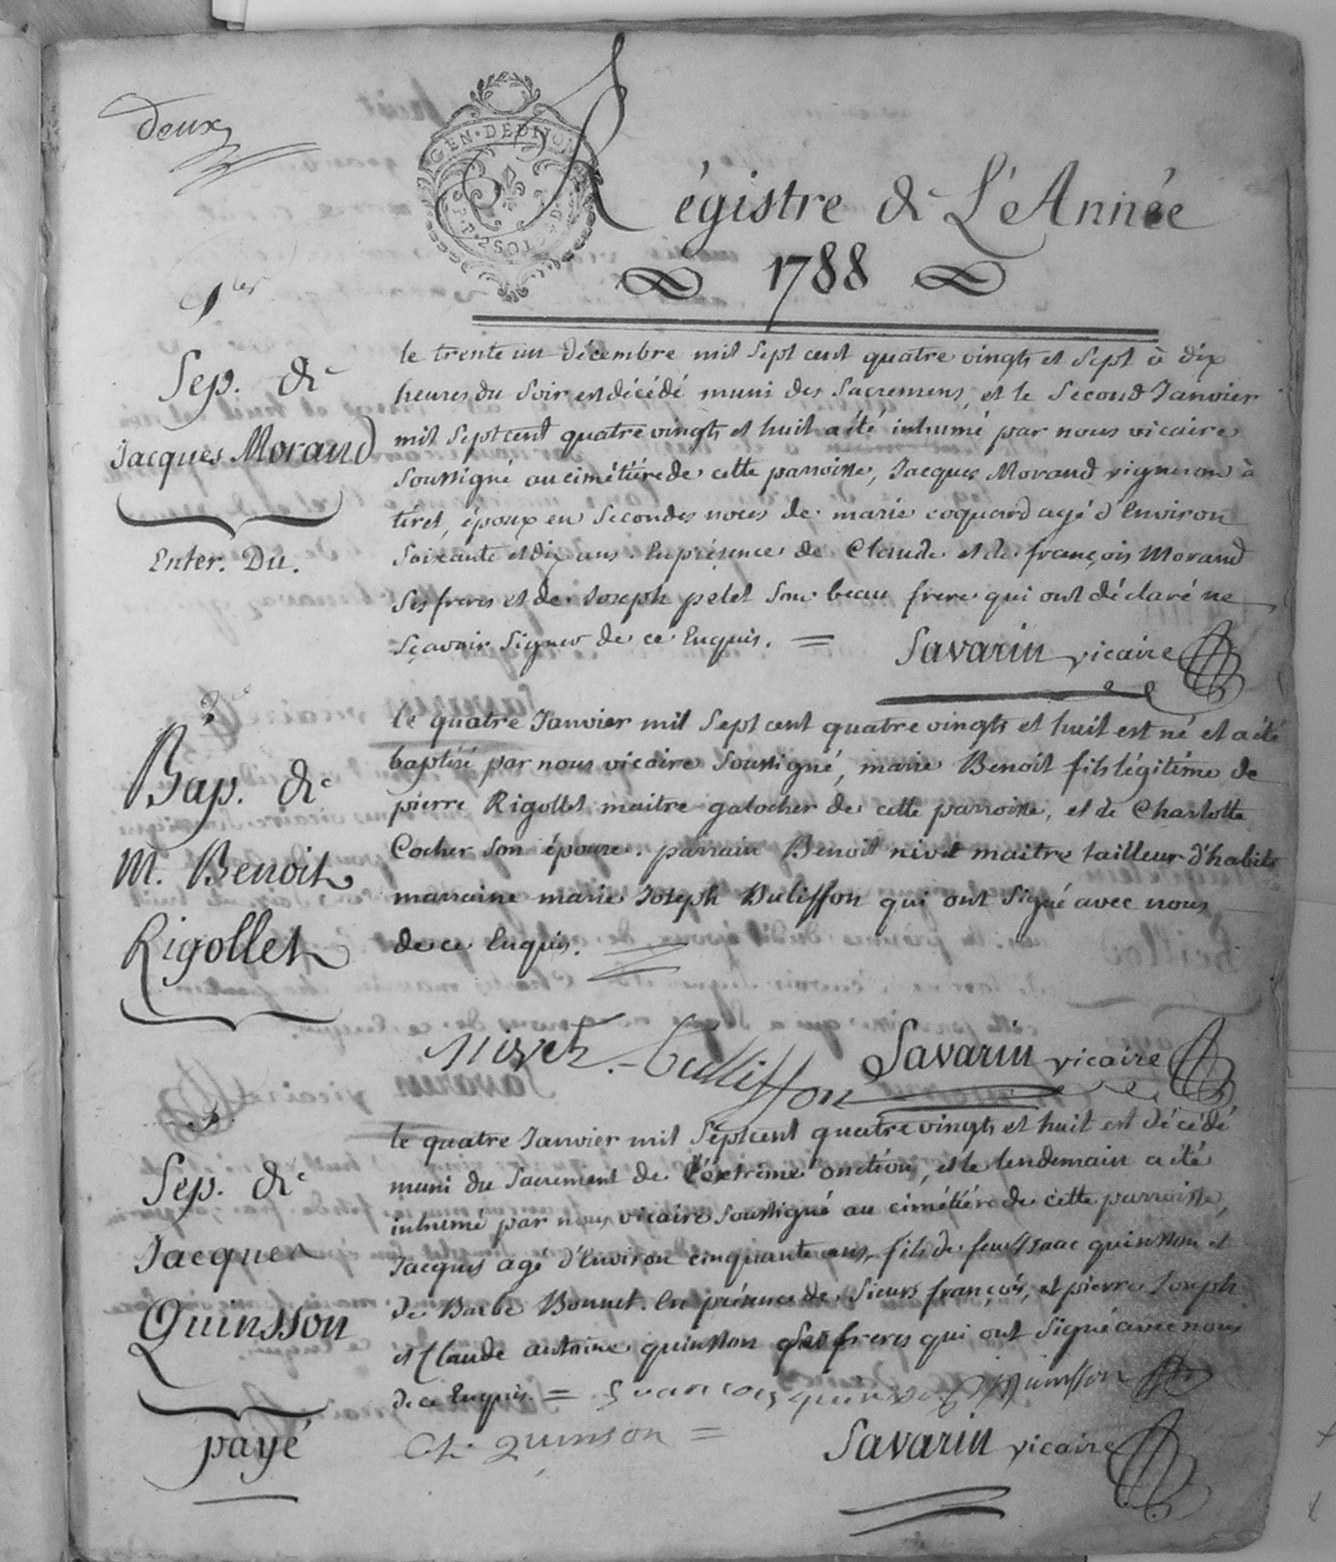 deux
GEN · DE DIJON
Régistre de L'Année
1788
1er
Sep. de
Jacques Morand
Enter. Du.
le trente un décembre mil sept cent quatre vingts et sept à dix
heures du soir est décédé muni des Sacremens, et le second Janvier
mil sept cent quatre vingts et huit a été inhumé par nous vicaire
soussigné au cimétiére de cette parroisse, Jacques Morand vigneron à
tiret, époux en secondes noces de marie coquard agé d'Environ
soixante et dix ans. En présence de Claude et de françois Morand
ses freres et de Joseph pelet son beau frere qui ont déclaré ne
sçavoir signer de ce Enquis. =
Savarin vicaire
2e
Bap. de
M. Benoit
Rigollet
le quatre Janvier mil sept cent quatre vingts et huit est né et a été
baptisé par nous vicaire soussigné, marie Benoit fils légitime de
pierre Rigollet maitre galocher de cette parroisse, et de Charlotte
Cocher son épouse. parrain Benoit nivet maitre tailleur d'habits
marraine marie Joseph Dulisson qui ont signé avec nous
de ce Enquis.
nivet Dullisson Savarin vicaire
3
Sep. de
Jacques
Quinsson
payé
le quatre Janvier mil sept cent quatre vingts et huit est décédé
muni du sacrement de l'éxtrême onction, et le lendemain a été
inhumé par nous vicaire soussigné au cimétiére de cette parroisse,
Jacques agé d'Environ cinquante ans, fils de feu Isaac quinsson et
de Barbe Bonnet. En présence de Sieurs françois, et pierre Joseph
et Claude antoine quinsson ses freres qui ont signé avec nous
de ce Enquis = francois quinson quinsson
Cl. quinson =
Savarin vicaire